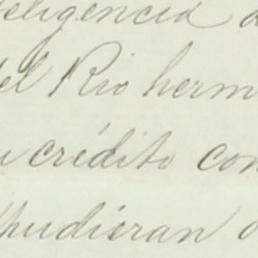 eligencia
del Rio herm
u crédito con
pudieran